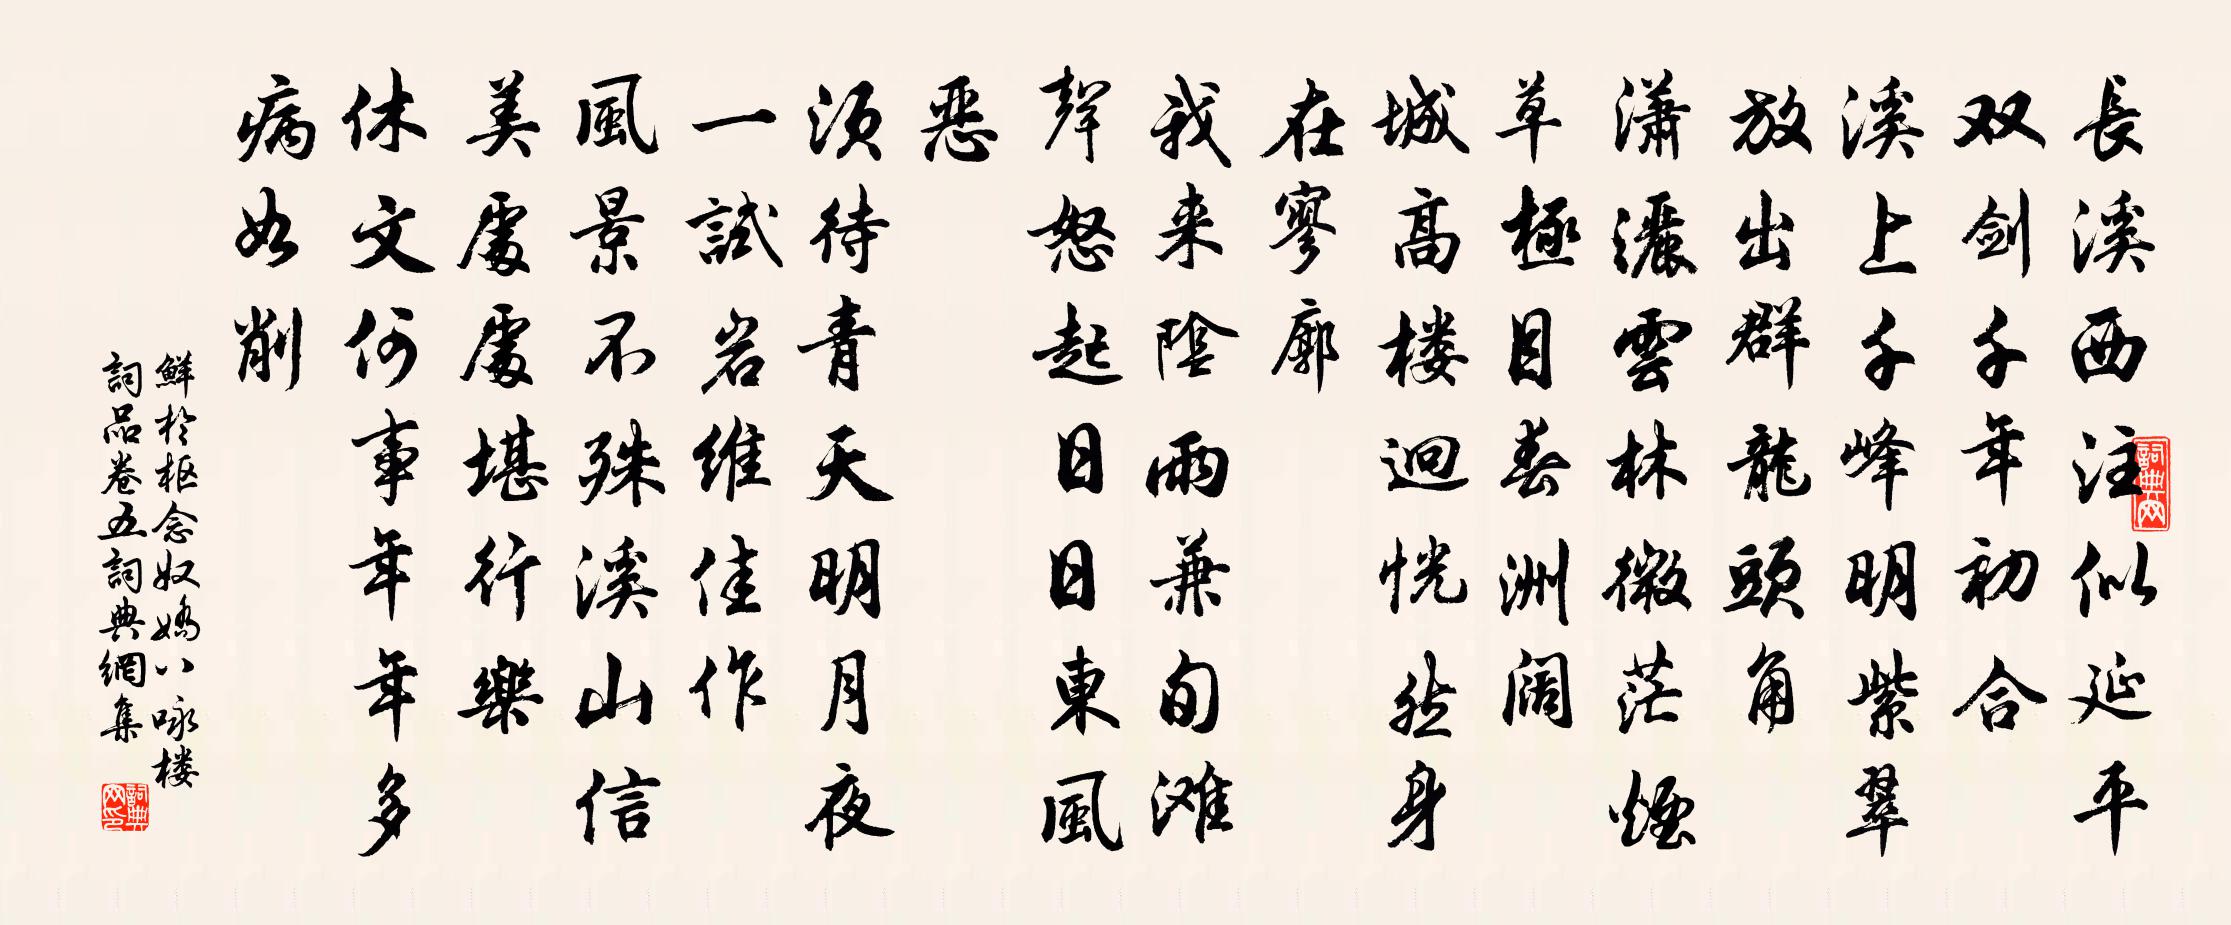 長溪西注似延平
双剑千年初合
溪上千峰明紫翠
放出群龍頭角
潇灑雲林微茫煙
草極目春洲阔
城高楼迥恍然身
在寥廓
我来陰雨兼旬滩
聲怒起日日東風
惡
須待青天明月夜
一試岩維佳作
風景不殊溪山信
美處處堪行樂
休文何事年年多
病如削
鮮於枢念奴嬌八咏楼
詞品卷五詞典網集
詞典网
詞典网印